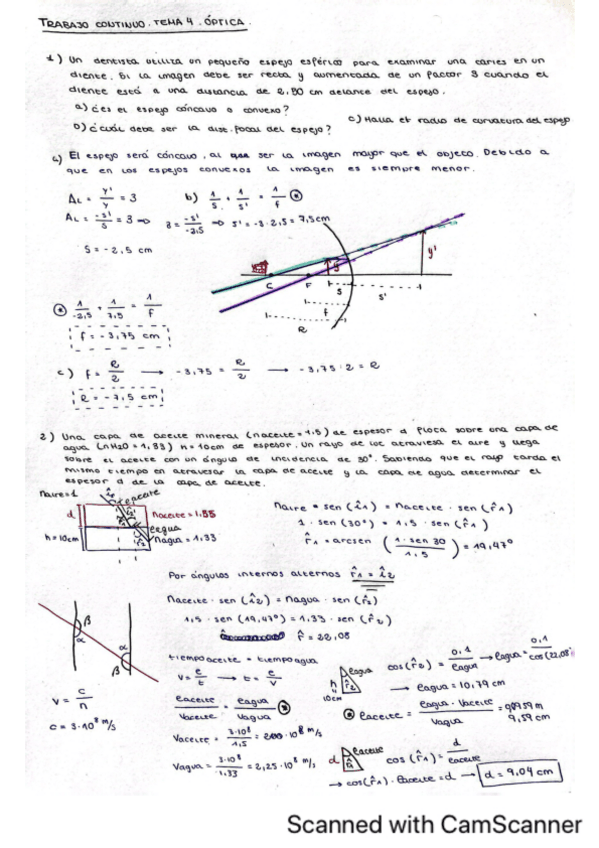 TRABAJO CONTINUO. TEMA 4. ÓPTICA.
1) Un dentista utiliza un pequeño espejo esférico para examinar una caries en un
diente. Si la imagen debe ser recta y aumentada de un factor 3 cuando el
diente está a una distancia de 2,50 cm delante del espejo.
a) ¿es el espejo cóncavo o convexo?
b) ¿cuál debe ser la dist. focal del espejo?
c) Halla el radio de curvatura del espejo
a) El espejo será cóncavo, al ser la imagen mayor que el objeto. Debido a
que en los espejos convexos la imagen es siempre menor.
AL = y'/y = 3
b) 1/s + 1/s' = 1/f
AL = -s'/s = 3 => 3 = -s'/-2,5 => s' = -3·2,5 = 7,5cm
s = -2,5 cm
C F S S' f R y y'
1/-2,5 + 1/7,5 = 1/f
f = -3,75 cm
c) f = R/2 → -3,75 = R/2 → -3,75·2 = R
R = -7,5 cm
2) Una capa de aceite mineral (naceite = 1.5) de espesor d flota sobre una capa de
agua (nH2O = 1,33) h = 10cm de espesor. Un rayo de luz atraviesa el aire y llega
sobre el aceite con un ángulo de incidencia de 30°. Sabiendo que el rayo tarda el
mismo tiempo en atravesar la capa de aceite y la capa de agua determinar el
espesor d de la capa de aceite.
naire = 1
eaceite
d
naceite = 1.55
eagua
h = 10cm
nagua = 1.33
naire · sen (î1) = naceite · sen (r̂1)
1 · sen (30°) = 1,5 · sen (r̂1)
r̂1 = arcsen (1·sen 30/1,5) = 19,47°
Por ángulos internos alternos r̂1 = î2
naceite · sen (î2) = nagua · sen (r̂2)
1,5 · sen (19,47°) = 1.33 · sen (r̂2)
r̂ = 22,08
β α α β
v = c/n
c = 3·10⁸ m/s
tiempo aceite = tiempo agua
v = e/t → t = e/v
eaceite/vaceite = eagua/vagua
vaceite = 3·10⁸/1,5 = 2·10⁸ m/s
vagua = 3·10⁸/1,33 = 2,25·10⁸ m/s
h 10cm eagua r̂2
cos (r̂2) = 0,1/eagua → eagua = 0,1/cos(22,08)
→ eagua = 10,79 cm
eaceite = eagua · vaceite/vagua =
9,59 cm
d eaceite r̂1
cos (r̂1) = d/eaceite
→ cos(r̂1) · eaceite = d → d = 9,04 cm
Scanned with CamScanner